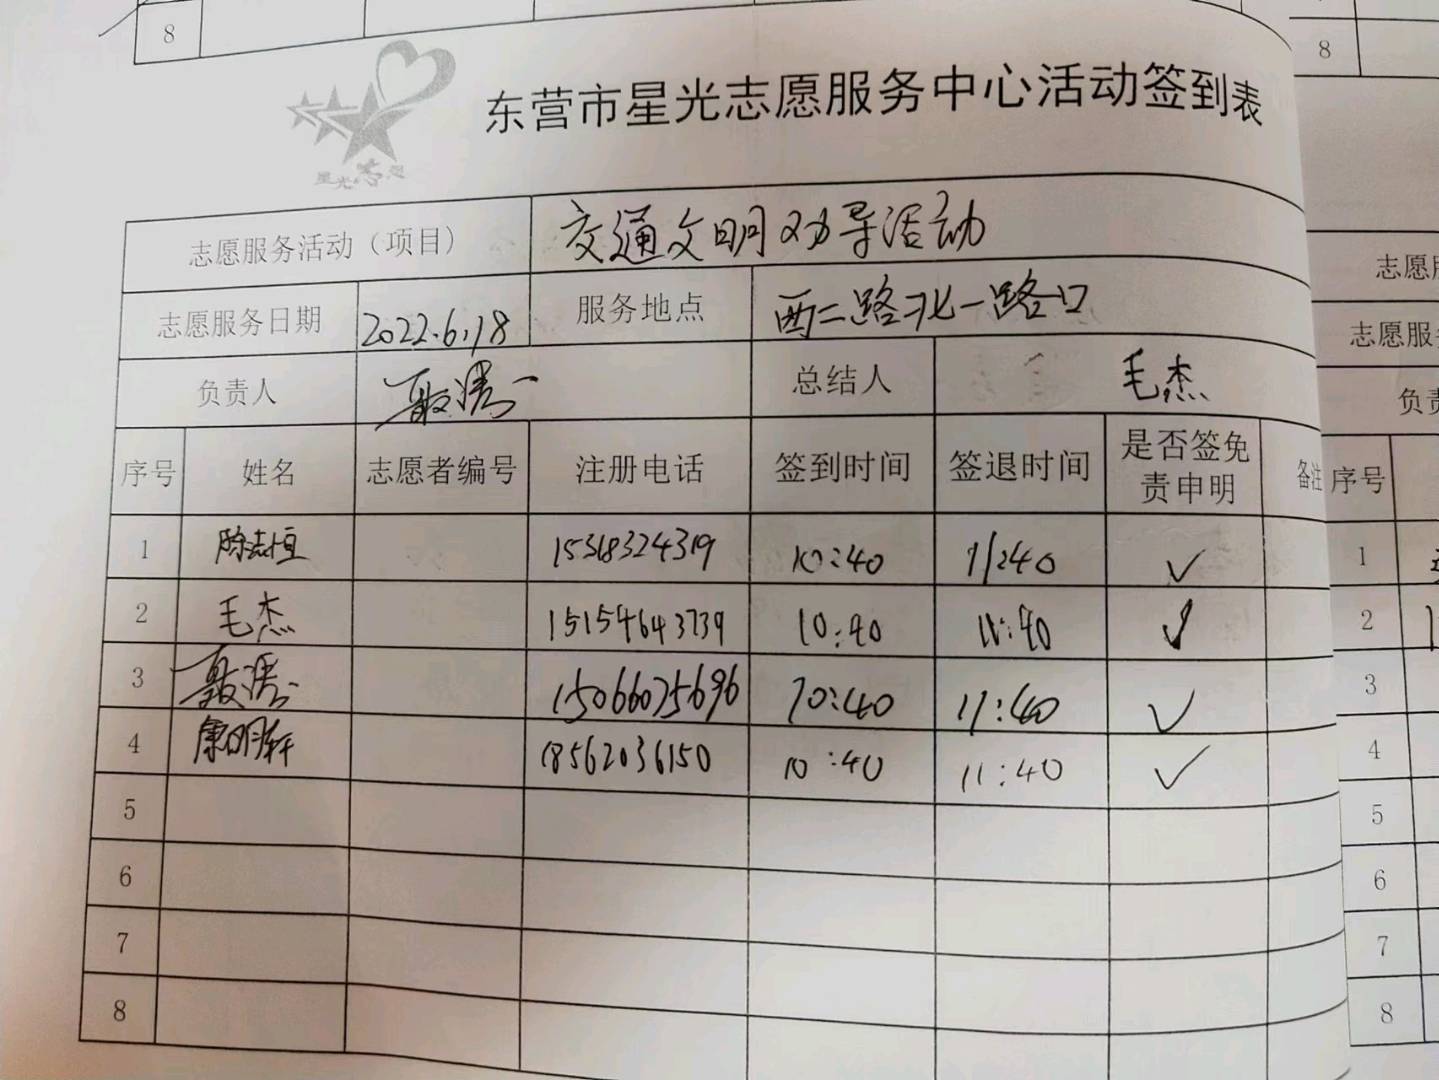 8
8
星光志愿
东营市星光志愿服务中心活动签到表
志愿服务活动（项目） 交通文明劝导活动
志愿服务日期 2022.6.18 服务地点 西二路北一路口
负责人 总结人 毛杰
序号 姓名 志愿者编号 注册电话 签到时间 签退时间 是否签免责申明 备注
1 陈志恒 15318324319 10:40 11:40 ✓
2 毛杰 15154643739 10:40 11:40 ✓
3 15066075696 10:40 11:40 ✓
4 康明轩 18562036150 10:40 11:40 ✓
5
6
7
8
志愿
志愿服
负责
序号
1
2
3
4
5
6
7
8